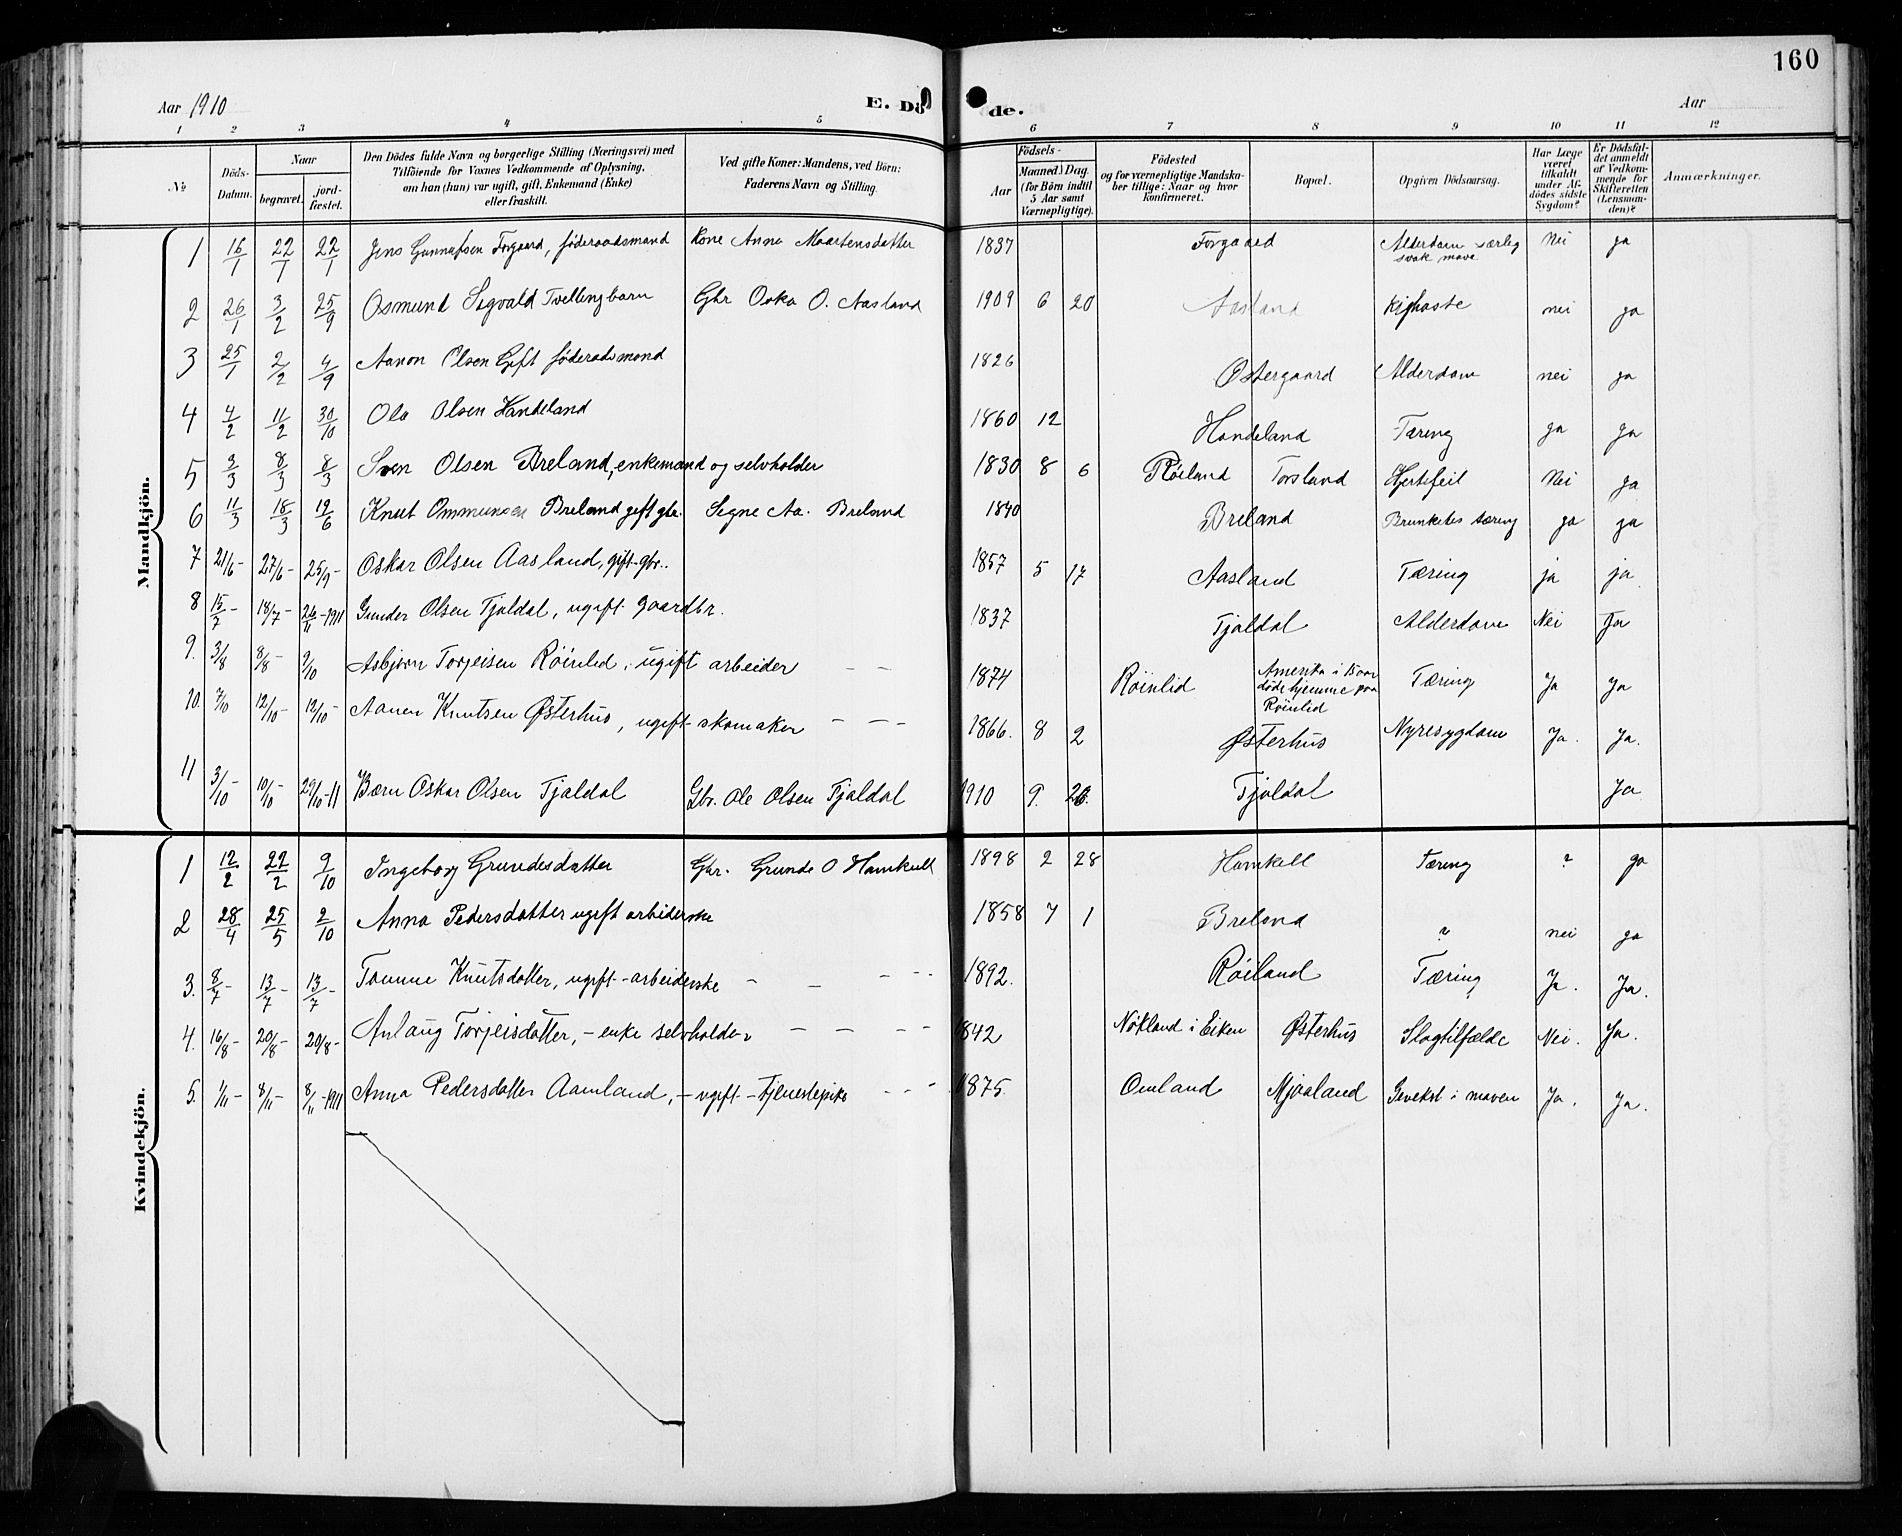 160
Aar 1910
E. Dö de.
Aar
1 2 3 4 5 6 7 8 9 10 11 12
№
Döds-Datum.
Naar
begravet.
jord-fæstet.
Den Dödes fulde Navn og borgerlige Stilling (Næringsvei) med
Tilföiende for Voxnes Vedkommende af Oplysning,
om han (hun) var ugift, gift, Enkemand (Enke)
eller fraskilt.
Ved gifte Koner: Mandens, ved Börn:
Faderens Navn og Stilling.
Födsels-
Aar
Maaned. Dag.
(for Börn indtil
5 Aar samt
Værnepligtige).
Födested
og for værnepligtige Mandska-
ber tillige: Naar og hvor
konfirmeret.
Bopæl.
Opgiven Dödsaarsag.
Har Læge
været
tilkaldt
under Af-
dödes sidste
Sygdom?
Er Dödsfal-
det anmeldt
af Vedkom-
mende for
Skifteretten
(Lensman-
den)?
Anmærkninger.
Mandkjön.
1 16/1 22/1 22/1 Jens Gunnufsen Torgaard, föderaadsmand Kone Anna Maartensdatter 1837 Torgaard Alderdom særleg svak mave Nei ja
2 26/1 3/2 25/9 Osmund Sigvald Tvellingbarn Gbr Oska O. Aasland 1909 6 20 Aasland Kighoste nei ja
3 25/1 2/2 4/9 Aanon Olsen Gift föderaadsmand 1826 Östergaard Alderdom nei ja
4 4/2 11/2 30/10 Ola Olsen Handeland 1860 12 Handeland Tæring ja ja
5 3/3 8/3 8/3 Sven Olsen Breland, enkemand og selvholder 1830 8 6 Röiland Torsland Hjertfeil Nei ja
6 11/3 18/3 19/6 Knut Ommunsen Breland gift gbr. Segne Aa. Breland 1840 Breland Brunketes tæring ja ja
7 21/6 - 27/6 - 25/9 - Oskar Olsen Aasland, gift - gbr. 1857 5 17 Aasland Tæring ja ja
8 15/7 - 18/7 - 26/11 - 1911 Gunder Olsen Tjaldal, ugift gaardbr. 1837 Tjaldal Alderdom Nei Ja
9. 3/8 8/8 - 9/10 Asbjørn Torjeisen Röinlid, ugift arbeider - - 1874 Röinlid Amerika i 15 aar döde hjemme paa Röinlid Tæring Ja Ja
10. 7/10 12/10 - 12/10 - Aanen Knutsen Østerhus, ugift skomaker - - - 1866. 8 2 Østerhus Nyresygdom Ja. Ja.
11 3/10 - 10/10 - 29/10 - 11 Barn Oskar Olsen Tjaldal Gbr. Ole Olsen Tjaldal 1910 9. 26. Tjaldal Ja
Kvindekjön.
1 12/2 22/2 9/10 Ingeborg Grundesdatter Gbr. Grunde O Hamkell 1898 2 28 Hamkell Tæring ? ja
2 28/4 25/5 2/10 Anna Pedersdatter ugift arbiderske 1858 7 1 Breland ? nei ja
3. 8/7 - 13/7 - 13/7 - Tomine Knutsdatter, ugift - arbeiderske - - - - 1892. Röiland Tæring Ja. Ja.
4. 16/8 - 20/8 - 20/8 - Anlaug Torjeisdatter, - enke selvholder - - - - 1842 Nökland i Eiken Østerhus Slagtilfælde Nei. Ja.
5. 1/11 - 8/11 - 8/11 - 1911 Anna Pedersdatter Aamland, - ugift - tjenestepike - - - 1875. Omland Mjaaland Gevekst i maven Ja. Ja.